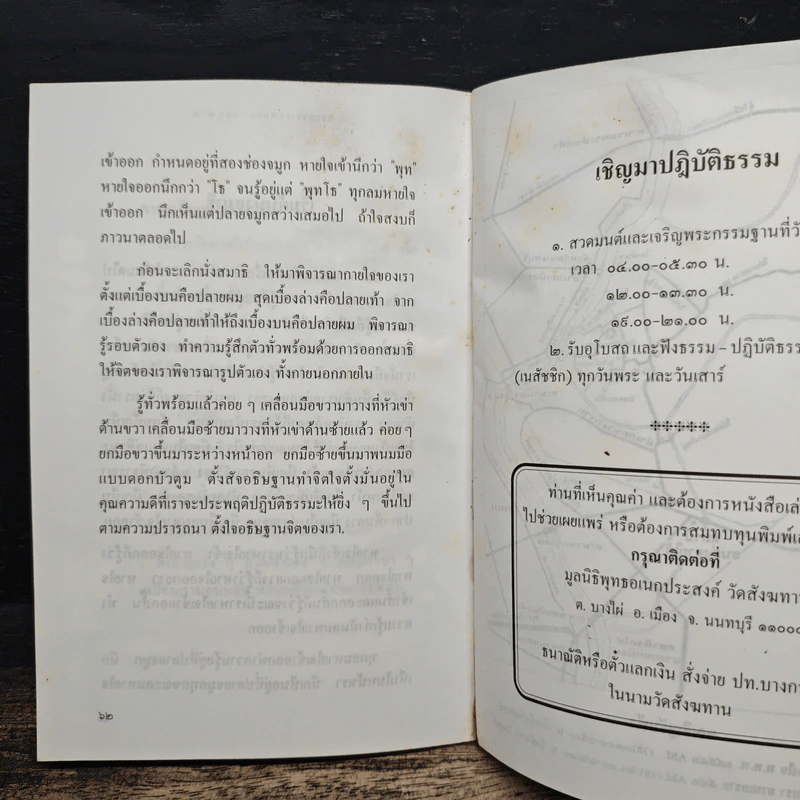 เข้าออก กำหนดอยู่ที่สองช่องจมูก หายใจเข้านึกว่า "พุท"
หายใจออกนึกว่า "โธ" จนรู้อยู่แต่ "พุทโธ" ทุกลมหายใจ
เข้าออก นึกเห็นแต่ปลายจมูกสว่างเสมอไป ถ้าใจสงบก็
ภาวนาตลอดไป
ก่อนจะเลิกนั่งสมาธิ ให้มาพิจารณากายใจของเรา
ตั้งแต่เบื้องบนคือปลายผม สุดเบื้องล่างคือปลายเท้า จาก
เบื้องล่างคือปลายเท้าให้ถึงเบื้องบนคือปลายผม พิจารณา
รู้รอบตัวเอง ทำความรู้สึกตัวทั่วพร้อมด้วยการออกสมาธิ
ให้จิตของเราพิจารณารูปตัวเอง ทั้งภายนอกภายใน
รู้ทั่วพร้อมแล้วค่อย ๆ เคลื่อนมือขวามาวางที่หัวเข่า
ด้านขวา เคลื่อนมือซ้ายมาวางที่หัวเข่าด้านซ้ายแล้ว ค่อย ๆ
ยกมือขวาขึ้นมาระหว่างหน้าอก ยกมือซ้ายขึ้นมาพนมมือ
แบบดอกบัวตูม ตั้งสัจอธิษฐานทำจิตใจตั้งมั่นอยู่ใน
คุณความดีที่เราจะประพฤติปฏิบัติธรรมะให้ยิ่ง ๆ ขึ้นไป
ตามความปรารถนา ตั้งใจอธิษฐานจิตของเรา.
๖๒
เชิญมาปฏิบัติธรรม
๑. สวดมนต์และเจริญพระกรรมฐานที่วั
เวลา ๐๔.๐๐-๐๕.๓๐ น.
๑๒.๐๐-๑๓.๓๐ น.
๑๙.๐๐-๒๑.๐๐ น.
๒. รับอุโบสถ และฟังธรรม - ปฏิบัติธรร
(เนสัชชิก) ทุกวันพระ และวันเสาร์
ท่านที่เห็นคุณค่า และต้องการหนังสือเล่
ไปช่วยเผยแพร่ หรือต้องการสมทบทุนพิมพ์เ
กรุณาติดต่อที่
มูลนิธิพุทธอเนกประสงค์ วัดสังฆทา
ต. บางไผ่ อ. เมือง จ. นนทบุรี ๑๑๐๐๐
ธนาณัติหรือตั๋วแลกเงิน สั่งจ่าย ปท.บางก
ในนามวัดสังฆทาน